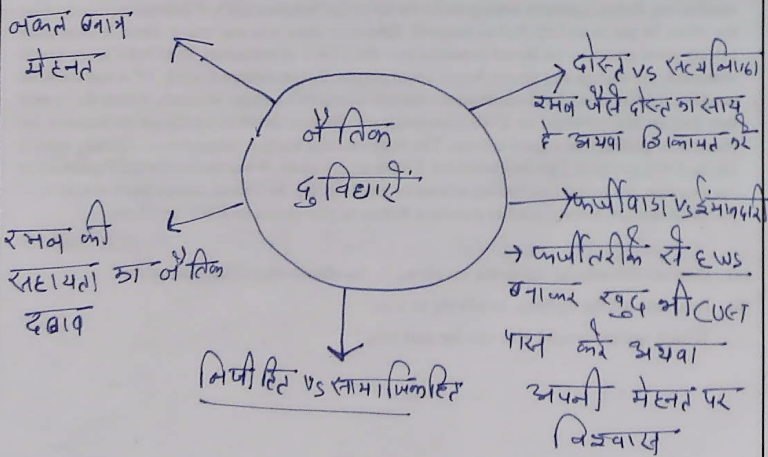 नकल बनाम
मेहनत
नैतिक
दुविधाएँ
दोस्त vs सत्यनिष्ठा
रमन जैसे दोस्त का साथ
दे अथवा शिकायत करे
फर्जीवाडा vs ईमानदारी
→ फर्जी तरीके से EWS
बनाकर खुद भी CUET
पास करे अथवा
अपनी मेहनत पर
विश्वास
रमन की
सहायता का नैतिक
दबाव
निजी हित vs सामाजिक हित